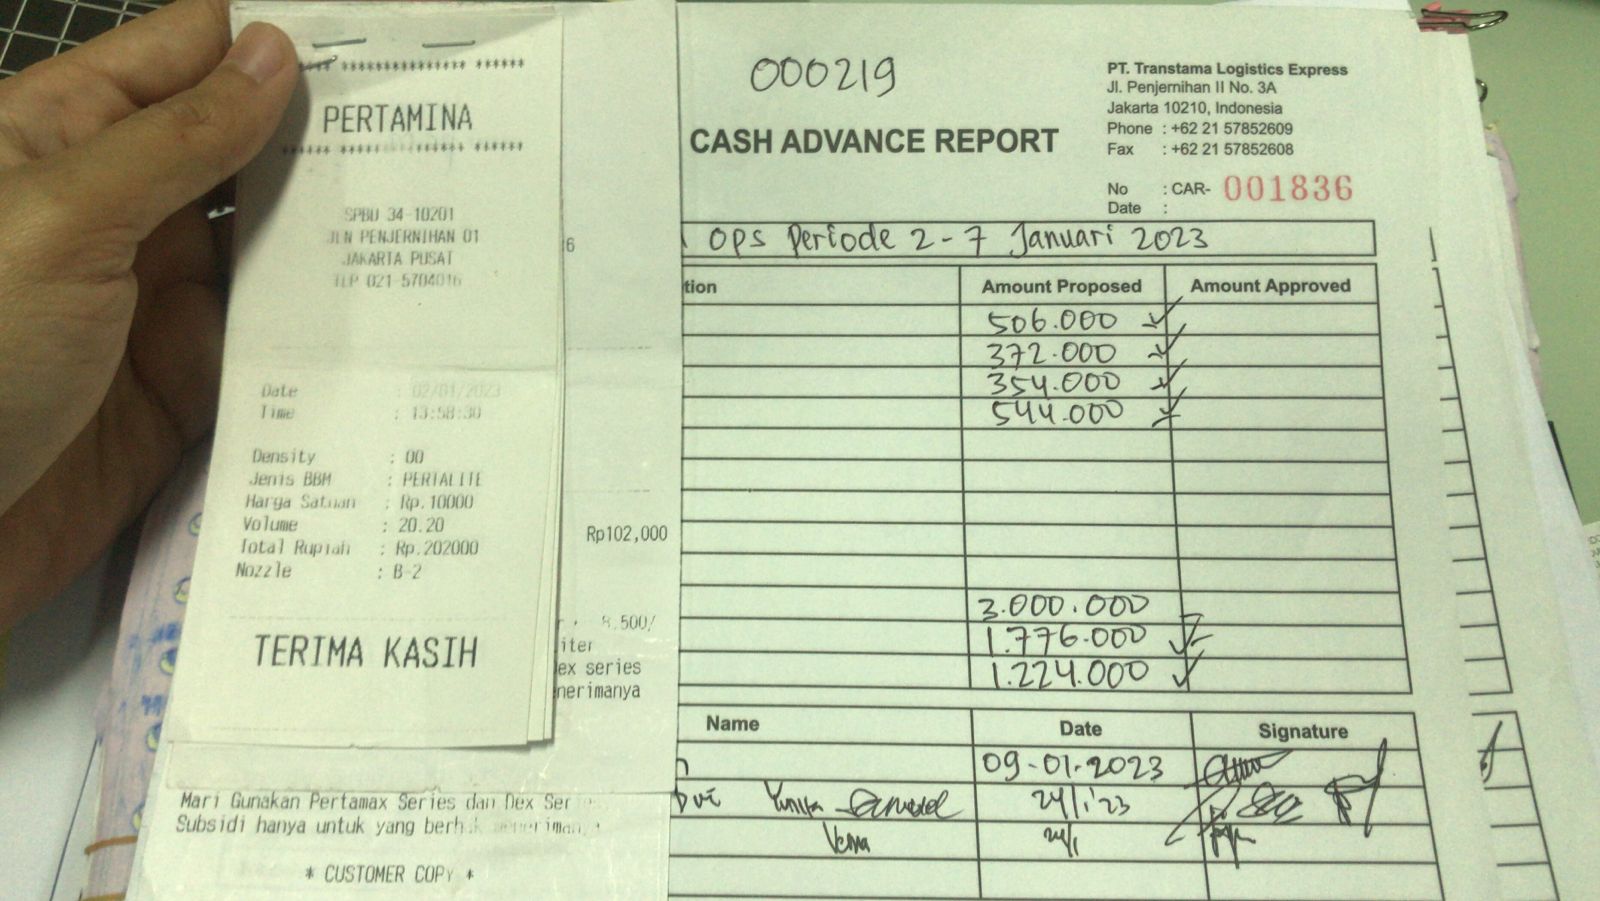 ****** *************** ******
PERTAMINA
****** *************** ******
SPBU 34-10201
JLN PENJERNIHAN 01
JAKARTA PUSAT
TLP 021-5704016
Date : 02/01/2023
Time : 13:58:30
Density : 00
Jenis BBM : PERTALITE
Harga Satuan : Rp.10000
Volume : 20.20
Total Rupiah : Rp.202000
Nozzle : B-2
TERIMA KASIH
6
Rp102,000
8.500/
iter
ex series
enerimanya
Mari Gunakan Pertamax Series dan Dex Series
Subsidi hanya untuk yang berhak menerimanya
* CUSTOMER COPY *
000219
CASH ADVANCE REPORT
PT. Transtama Logistics Express
Jl. Penjernihan II No. 3A
Jakarta 10210, Indonesia
Phone : +62 21 57852609
Fax : +62 21 57852608
No : CAR- 001836
Date :
Ops Periode 2-7 Januari 2023
tion Amount Proposed Amount Approved
506.000
372.000
354.000
544.000
3.000.000
1.776.000
1.224.000
Name Date Signature
09-01-2023
24/1'23
Vena 24/1